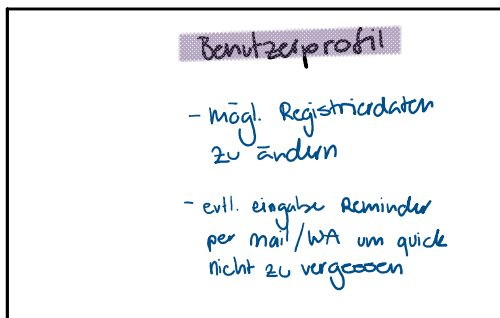 Benutzerprofil
- mögl. Registrierdaten
zu ändern
- evtl. eingabe Reminder
per mail/WA um quick
nicht zu vergessen